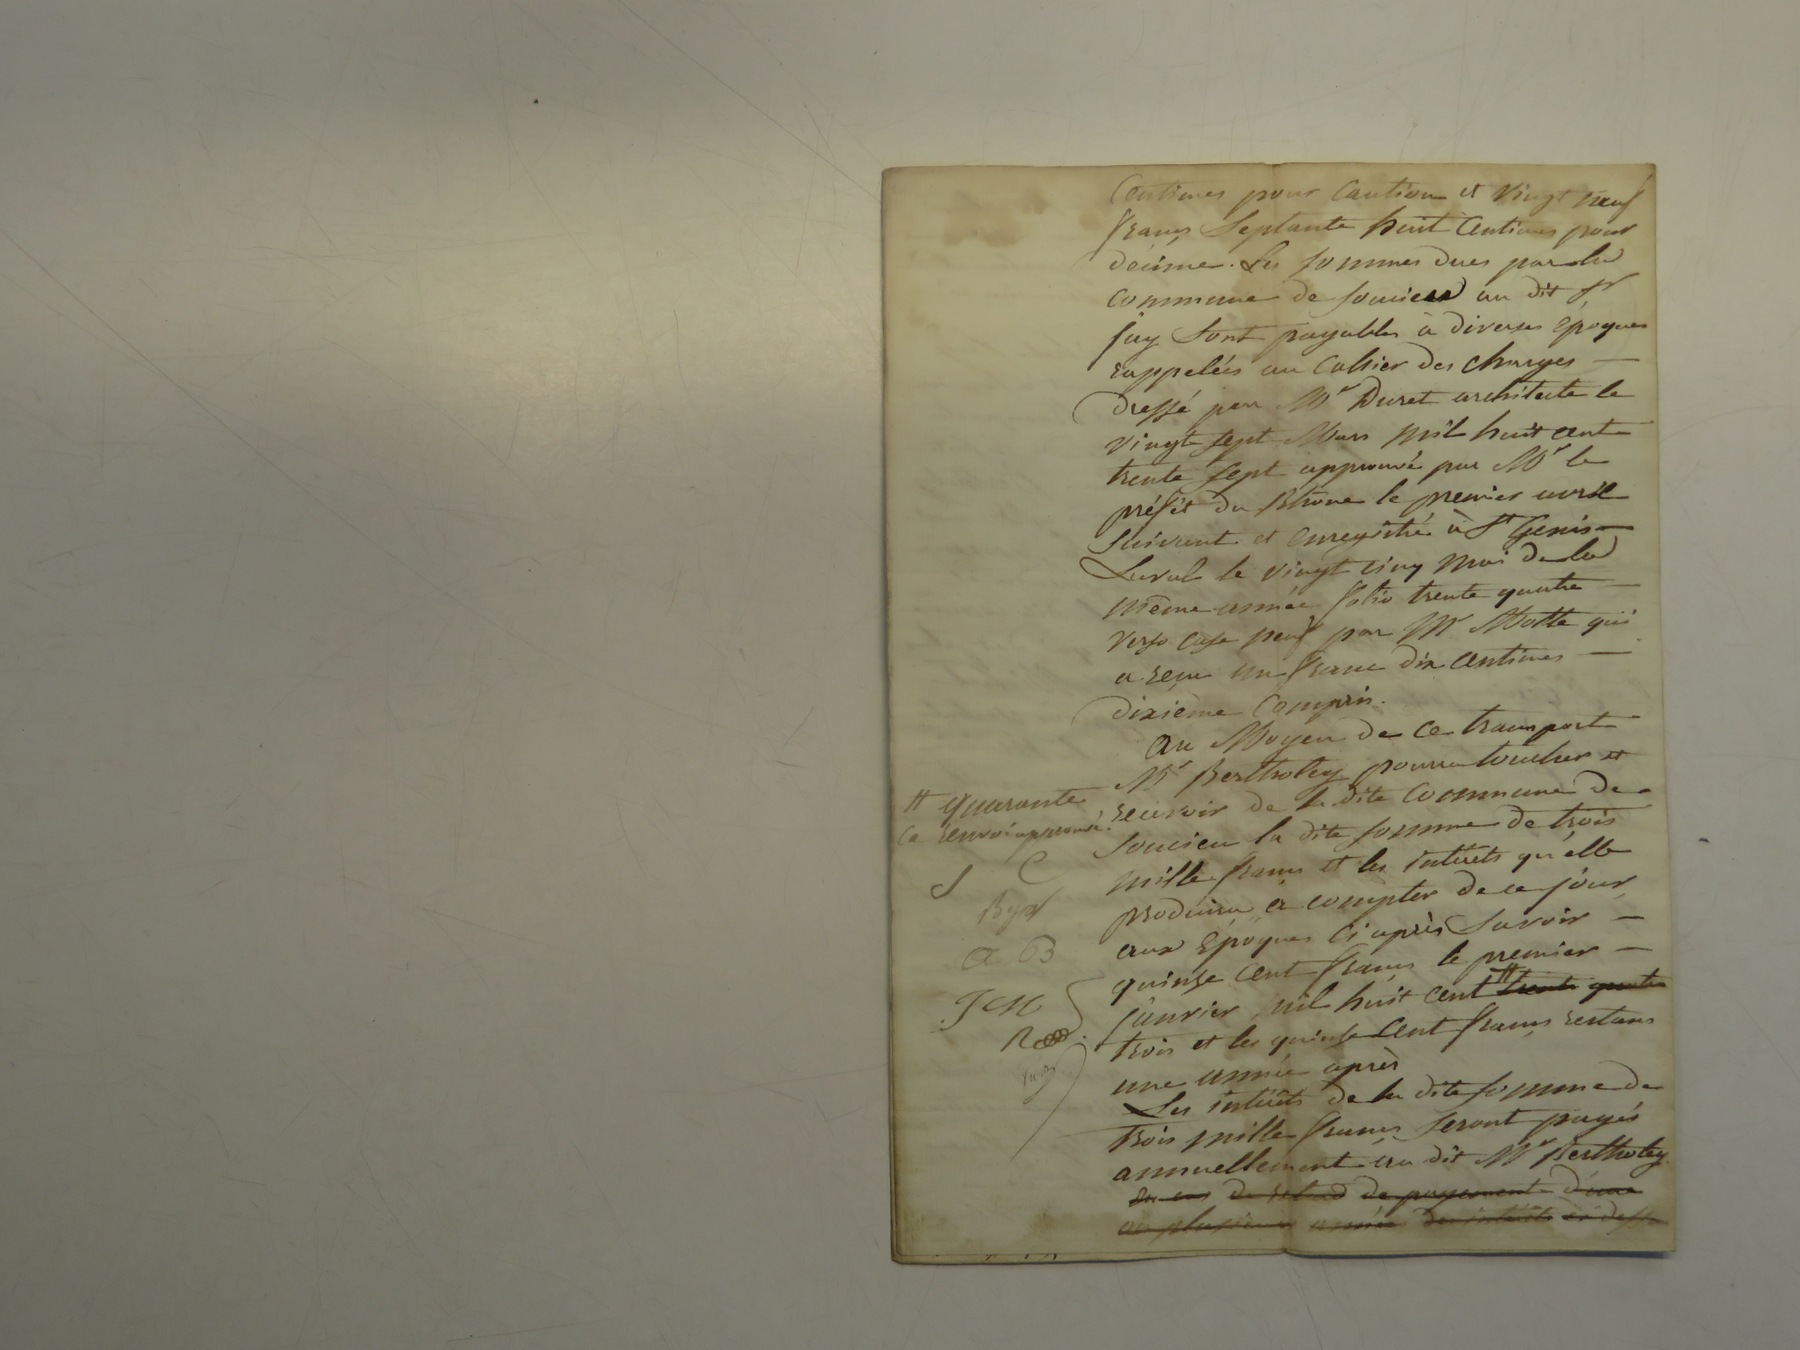 Centimes pour Caution et Vingt neuf
francs Septante huit Centimes pour
décime. Les sommes dues par la
commune de soucieu au dit sr
fay Sont payables à diverses Epoques
rappelées au Cahier des charges —
dressé par Mr Duret architecte le
vingt sept Mars mil huit cent
trente sept approuvé par Mr le
préfet du Rhône le premier avril
Suivant et enregistré à St Genis
Laval le vingt cinq mai de la
même année folio trente quatre —
verso case neuf par Mr Motte qui
a reçu un franc dix Centimes —
dixième Compris.
Au Moyen de ce transport
Mr Bertholey pourra toucher et
recevoir de la dite Commune de
soucieu la dite somme de trois
mille francs et les intérêts qu'elle
produira à compter de ce jour,
aux Epoques Ci après Savoir —
quinze cent francs le premier —
janvier mil huit cent # trente quatre
trois et les quinze Cent francs restans
une année après
Les intérêts de la dite somme de
trois mille francs Seront payés
annuellement au dit Mr Bertholey.
En cas de retard de payement d'une
ou plusieurs années des intérêts ci dessus
# quarante
Ce renvoi approuvé.
J C
a B
J M
R